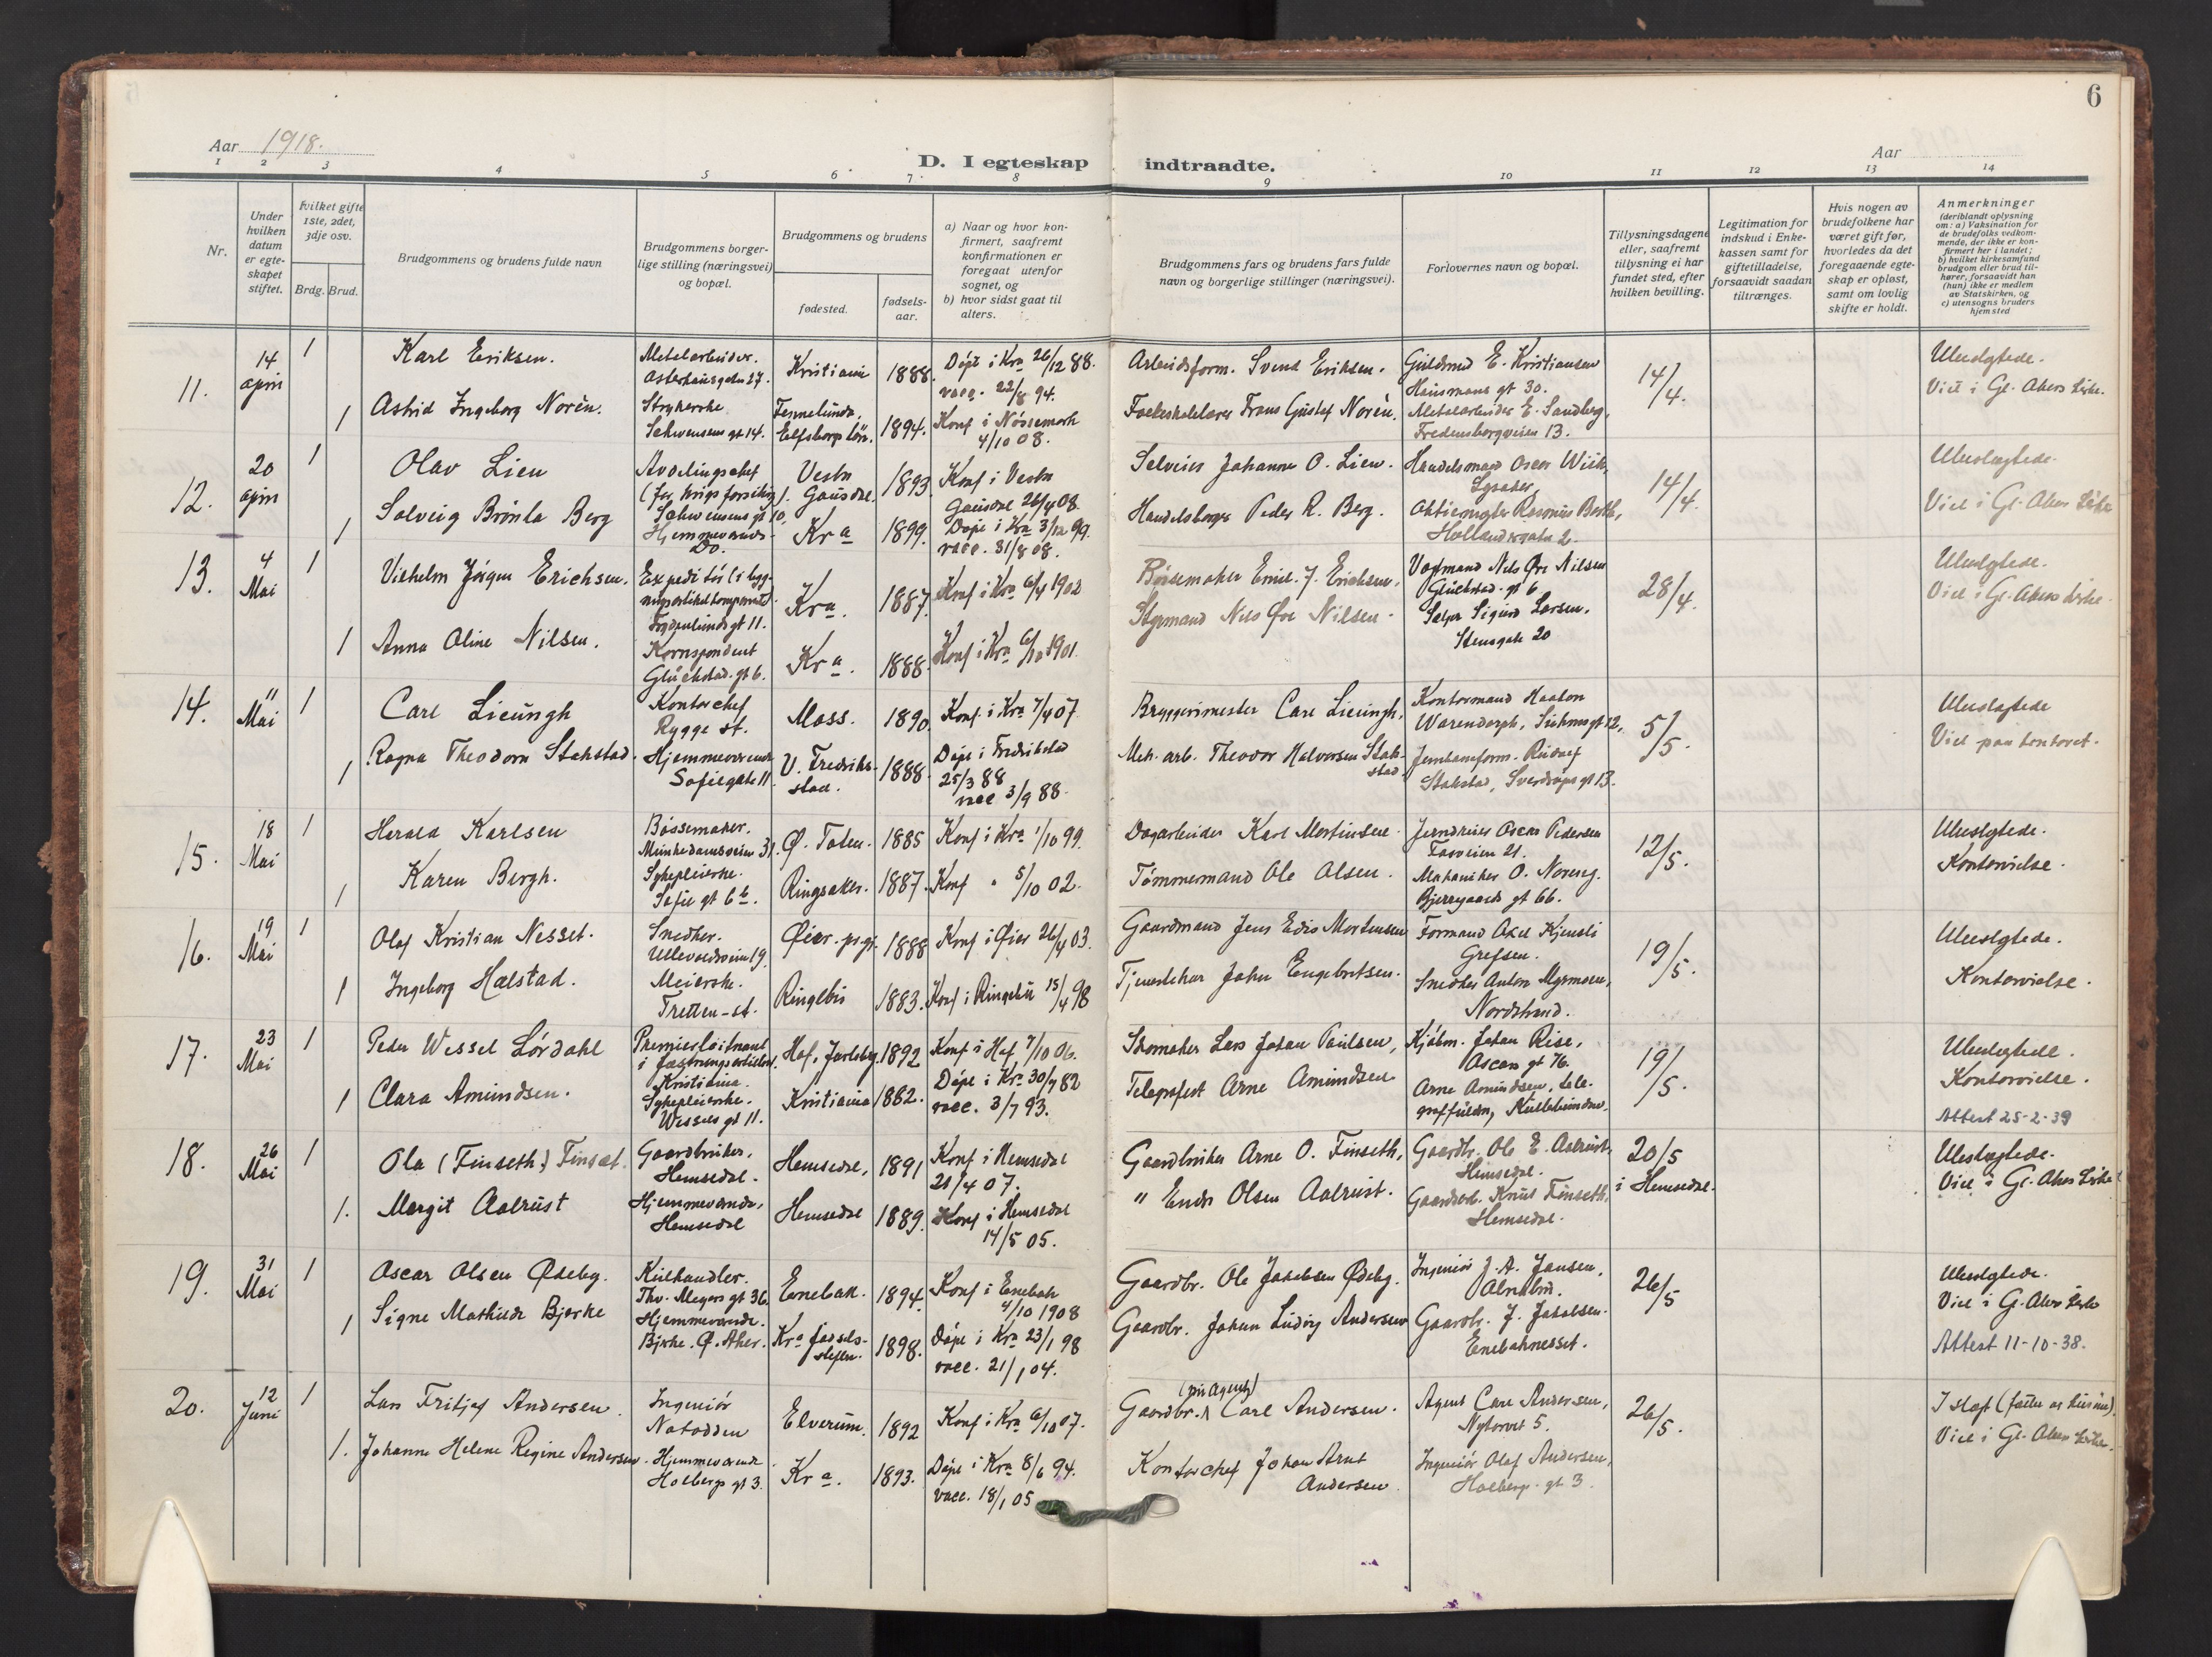 6
Aar 1918.
Aar
D. I egteskap indtraadte.
1 2 3 4 5 6 7 8 9 10 11 12 13 14
Nr.
Under hvilken datum er egte-skapet stiftet.
Hvilket gifte 1ste, 2det, 3dje osv.
Brdg. Brud.
Brudgommens og brudens fulde navn
Brudgommens borger-lige stilling (næringsvei) og bopæl.
Brudgommens og brudens
fødested.
fødsels-aar.
a) Naar og hvor kon-firmert, saafremt konfirmationen er foregaat utenfor sognet, og
b) hvor sidst gaat til alters.
Brudgommens fars og brudens fars fulde navn og borgerlige stillinger (næringsvei).
Forlovernes navn og bopæl.
Tillysningsdagene eller, saafremt tillysning ei har fundet sted, efter hvilken bevilling.
Legitimation for indskud i Enke-kassen samt for giftetilladelse, forsaavidt saadan tiltrænges.
Hvis nogen av brudefolkene har været gift før, hvorledes da det foregaaende egte-skap er opløst, samt om lovlig skifte er holdt.
Anmerkninger (deriblandt oplysning om: a) Vaksination for de brudefolks vedkom-mende, der ikke er kon-firmert her i landet; b) hvilket kirkesamfund brudgom eller brud til-hører, forsaavidt han (hun) ikke er medlem av Statskirken, og c) utensogns bruders hjemsted
11. 14 april 1 Karl Eriksen. Metalarbeider. Osterhausgaten 27. Kristiania 1888. Døpt i Kra 26/12 88. vacc. 22/8 94. Arbeidsform. Svend Eriksen. Guldsmed E. Kristiansen Hausmans gt 30. 14/4. Ubeslegtede. Viet i Gl. Akers kirke.
1 Astrid Ingeborg Norén. Strykerske Schwensens gt 14. Elfsborgs län. 1894. Konf i Nössemark 4/10 08. Frans Gustaf Norén. Metalarbeider E. Sandberg, Fredensborgveien 13.
12. 20 april 1 Olav Lien Avdelingschef Schwensens gt 10. Vestre Gausdal. 1893. Konf i Vestre Gausdal 26/4 08. Selveier Johannes O. Lien. Handelsmand Oscar Wiik, Lysaker 14/4. Ubeslegtede. Viet i Gl. Akers kirke
1 Solveig Brønla Berg Hjemmeværende Do. Kra 1899. Døpt i Kra 3/12 99. vacc. 31/8 08. Handelsborger Peder R. Berg. Hollandergaten 2.
13. 4 Mai 1 Vilhelm Jörgen Erichsen. Frydenlunds gt 11. Kra. 1887. Konf i Kra 6/4 1902 Børsemaker Emil J. Erichsen. Vagtmand Nils Øre Nilsen Glückstad. gt 6 28/4. Ubeslegtede. Viet i Gl. Akers kirke.
1 Anna Oline Nilsen. Korrespondent Glückstad. gt 6. Kra. 1888. Konf i Kra 6/10 1901. Styrmand Nils Øre Nilsen. Sigurd Larsen. Stensgate 20
14. 11 Mai 1 Carl Lieungh Kontorchef Rygge st. Moss. 1890. Konf. i Kra 7/4 07 Bryggerimester Carl Lieungh. Kontormand Haakon Warendorph, Suhmsgt 12, 5/5. Ubeslegtede Viet paa kontoret.
1 Ragna Theodora Stakstad. Hjemmeværende Sofiegate 11. V. Fredrikstad. 1888. Døpt i Fredrikstad 25/3 88 vacc 3/9 88. Mek. arb. Theodor Halvorsen Stakstad. Jernbaneform. Rudolf Stakstad, Sverdrups gt 13.
15. 18 Mai 1 Harald Karlsen Bössemaker. Munkedamsveien 31. Ø. Toten. 1885 Konf i Kra 1/10 99. Dagarbeider Karl Martinsen. Jerndreier Oscar Pedersen 12/5. Ubeslegtede. Kontorvielse.
1 Karen Bergh. Sykepleierske. Sofie gt 6b. Ringsaker. 1887. Konf " 5/10 02. Tømmermand Ole Olsen. Mekaniker O. Noreng. Bjerregaards gt 66.
16. 19 Mai 1 Olaf Kristian Nesset. Snedker. Ullevoldsveien 19. Øier. prgj. 1888 Konf i Øier 26/4 03. Gaardmand Jens Edis Mortensen Formand Axel Kjensli Grefsen. 19/5. Ubeslegtede. Kontorvielse.
1 Ingeborg Halstad. Meierske. Tretten-st. Ringebu 1883. Konf i Ringebu 15/4 98 Johan Engebretsen. Snedker Anton Myrmoen, Nordstrand.
17. 23 Mai 1 Peder Wessel Lørdahl Premierløitnant i fæstningsartilleriet. Kristiania. Hof, Jarlsberg. 1892 Konf i Hof 7/10 06. Skomaker Lars Johan Paulsen, Kjøbm. Johan Riise, Oscars gt 76. 19/5. Ubeslegtede. Kontorvielse. Attest 25-2-39
1 Clara Amundsen. Sykepleierske. Wessels gt 11. Kristiania 1882. Døpt i Kra 30/7 82 vacc. 3/7 93. Telegrafest Arne Amundsen Arne Amundsen,
18. 26 Mai 1 Ola (Finseth.) Finset. Gaardbruker. Hemsedal. Hemsedal, 1891 Konf i Hemsedal 21/4 07. Gaardbruker Arne O. Finseth, Gaardbr. Ole E. Aalrust, Hemsedal. 20/5 i Hemsedal. Ubeslegtede. Viet i Gl. Akers kirke
1. Margit Aalrust Hjemmeværende, Hemsedal Hemsedal 1889. Konf i Hemsedal 14/5 05. " Endre Olsen Aalrust. Knut Finseth, Hemsedal.
19. 31 Mai 1 Oscar Olsen Ødeby. Kulhandler. Thv. Meyers gt 36. Enebak. 1894. Konf i Enebak 4/10 1908 Gaardbr. Ole Jakobsen Ødeby. Ingeniør J. A. Jansen, Alnabru. 26/5 Ubeslegtede. Viet i Gl. Akers kirke Attest 11-10-38.
1 Signe Mathilde Bjerke Hjemmeværende. Bjerke. Ø. Aker. Kra fødselsstiften. 1898. Døpt i Kra 23/1 98 vacc. 21/1 04. Gaardbr. Johan Ludvig Andersen Gaardbr. J. Jakobsen. Enebaknesset.
20. 12 Juni 1 Lars Fritjof Andersen. Ingeniör Notodden Elverum. 1892 Konf i Kra 6/10 07. Gaardbr. (nu Agent) Carl Andersen. Agent Carl Andersen, Nytorvet 5. 26/5. I slegt Viet i Gl. Akers kirke.
1. Johanne Helene Regine Andersen. Hjemmeværende Holbergs gt 3. Kra. 1893. Døpt i Kra 8/6 94. vacc. 18/1 05 Kontorchef Johan Arnt Andersen. Ingeniör Olaf Andersen, Holbergs gt 3.